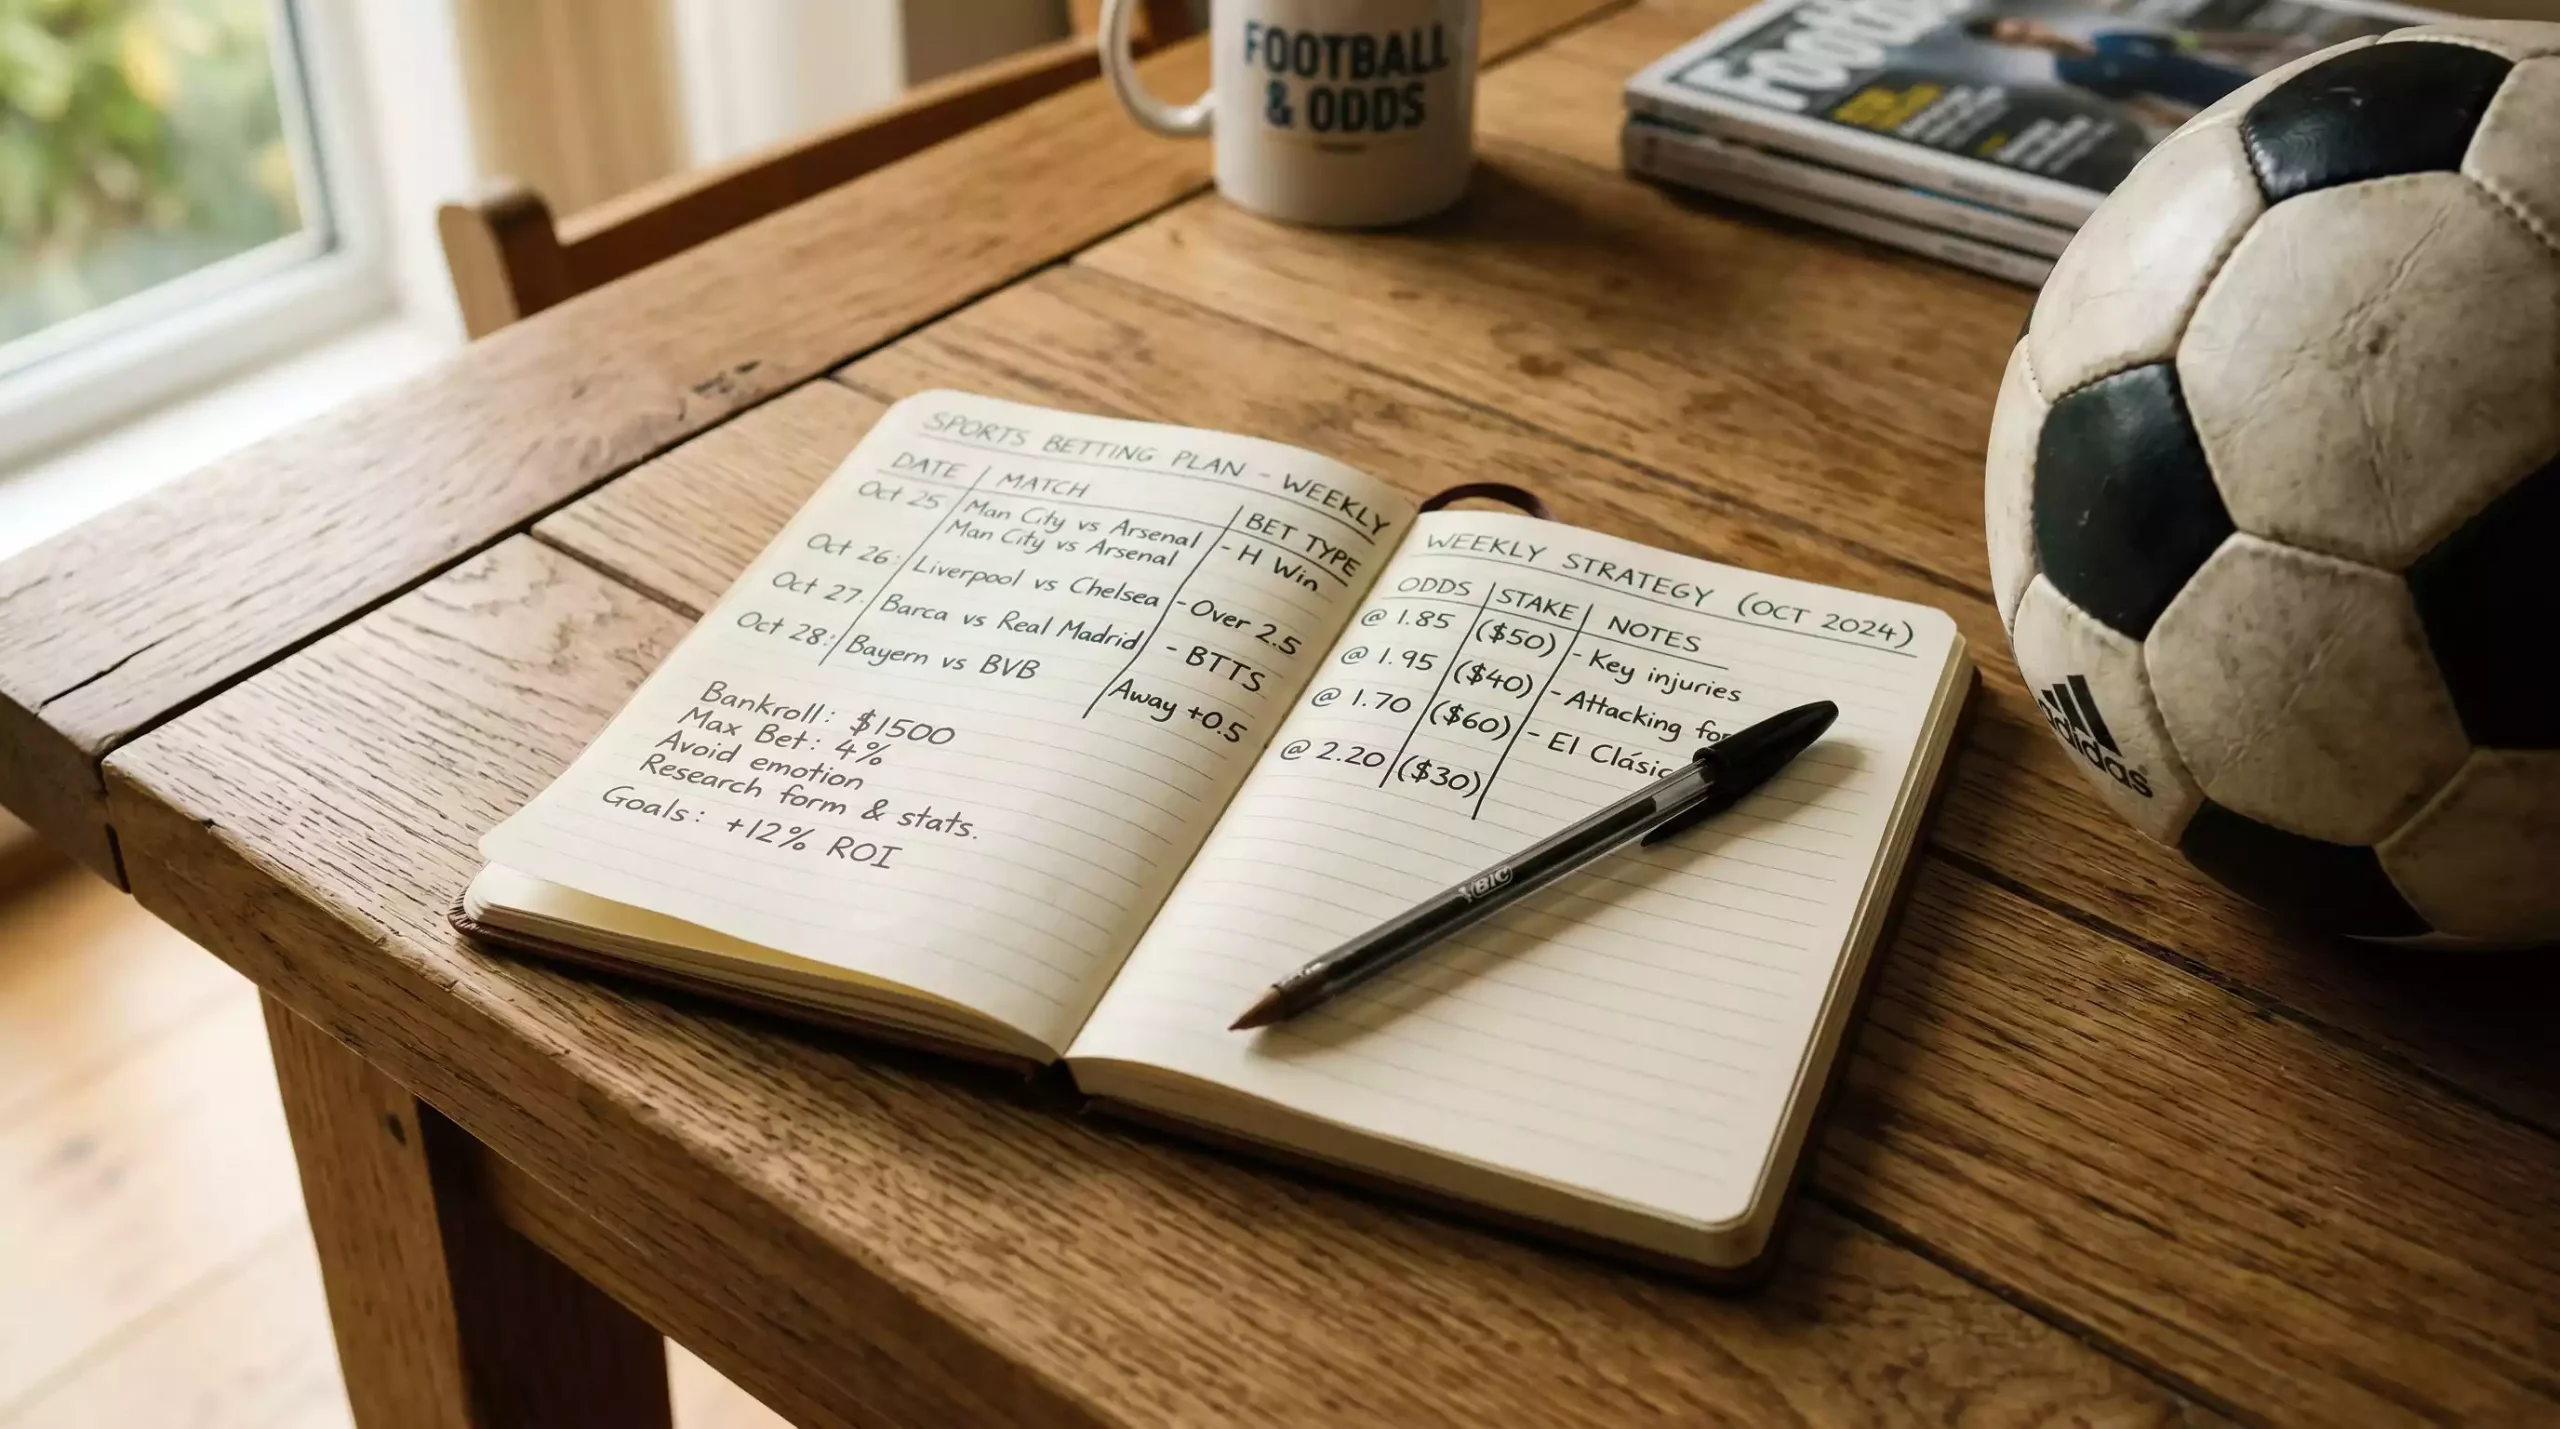 FOOTBALL
& ODDS
SPORTS BETTING PLAN - WEEKLY
DATE MATCH BET TYPE
Oct 25 Man City vs Arsenal - H Win
Man City vs Arsenal
Oct 26: Liverpool vs Chelsea - Over 2.5
Oct 27: Barca vs Real Madrid - BTTS
Oct 28: Bayern vs BVB Away +0.5
Bankroll: $1500
Max Bet: 4%
Avoid emotion
Research form & stats.
Goals: +12% ROI
WEEKLY STRATEGY (OCT 2024)
ODDS STAKE NOTES
@ 1.85 ($50) - Key injuries
@ 1.95 ($40) - Attacking
@ 1.70 ($60) - El
@ 2.20 ($30)
BIC
adidas